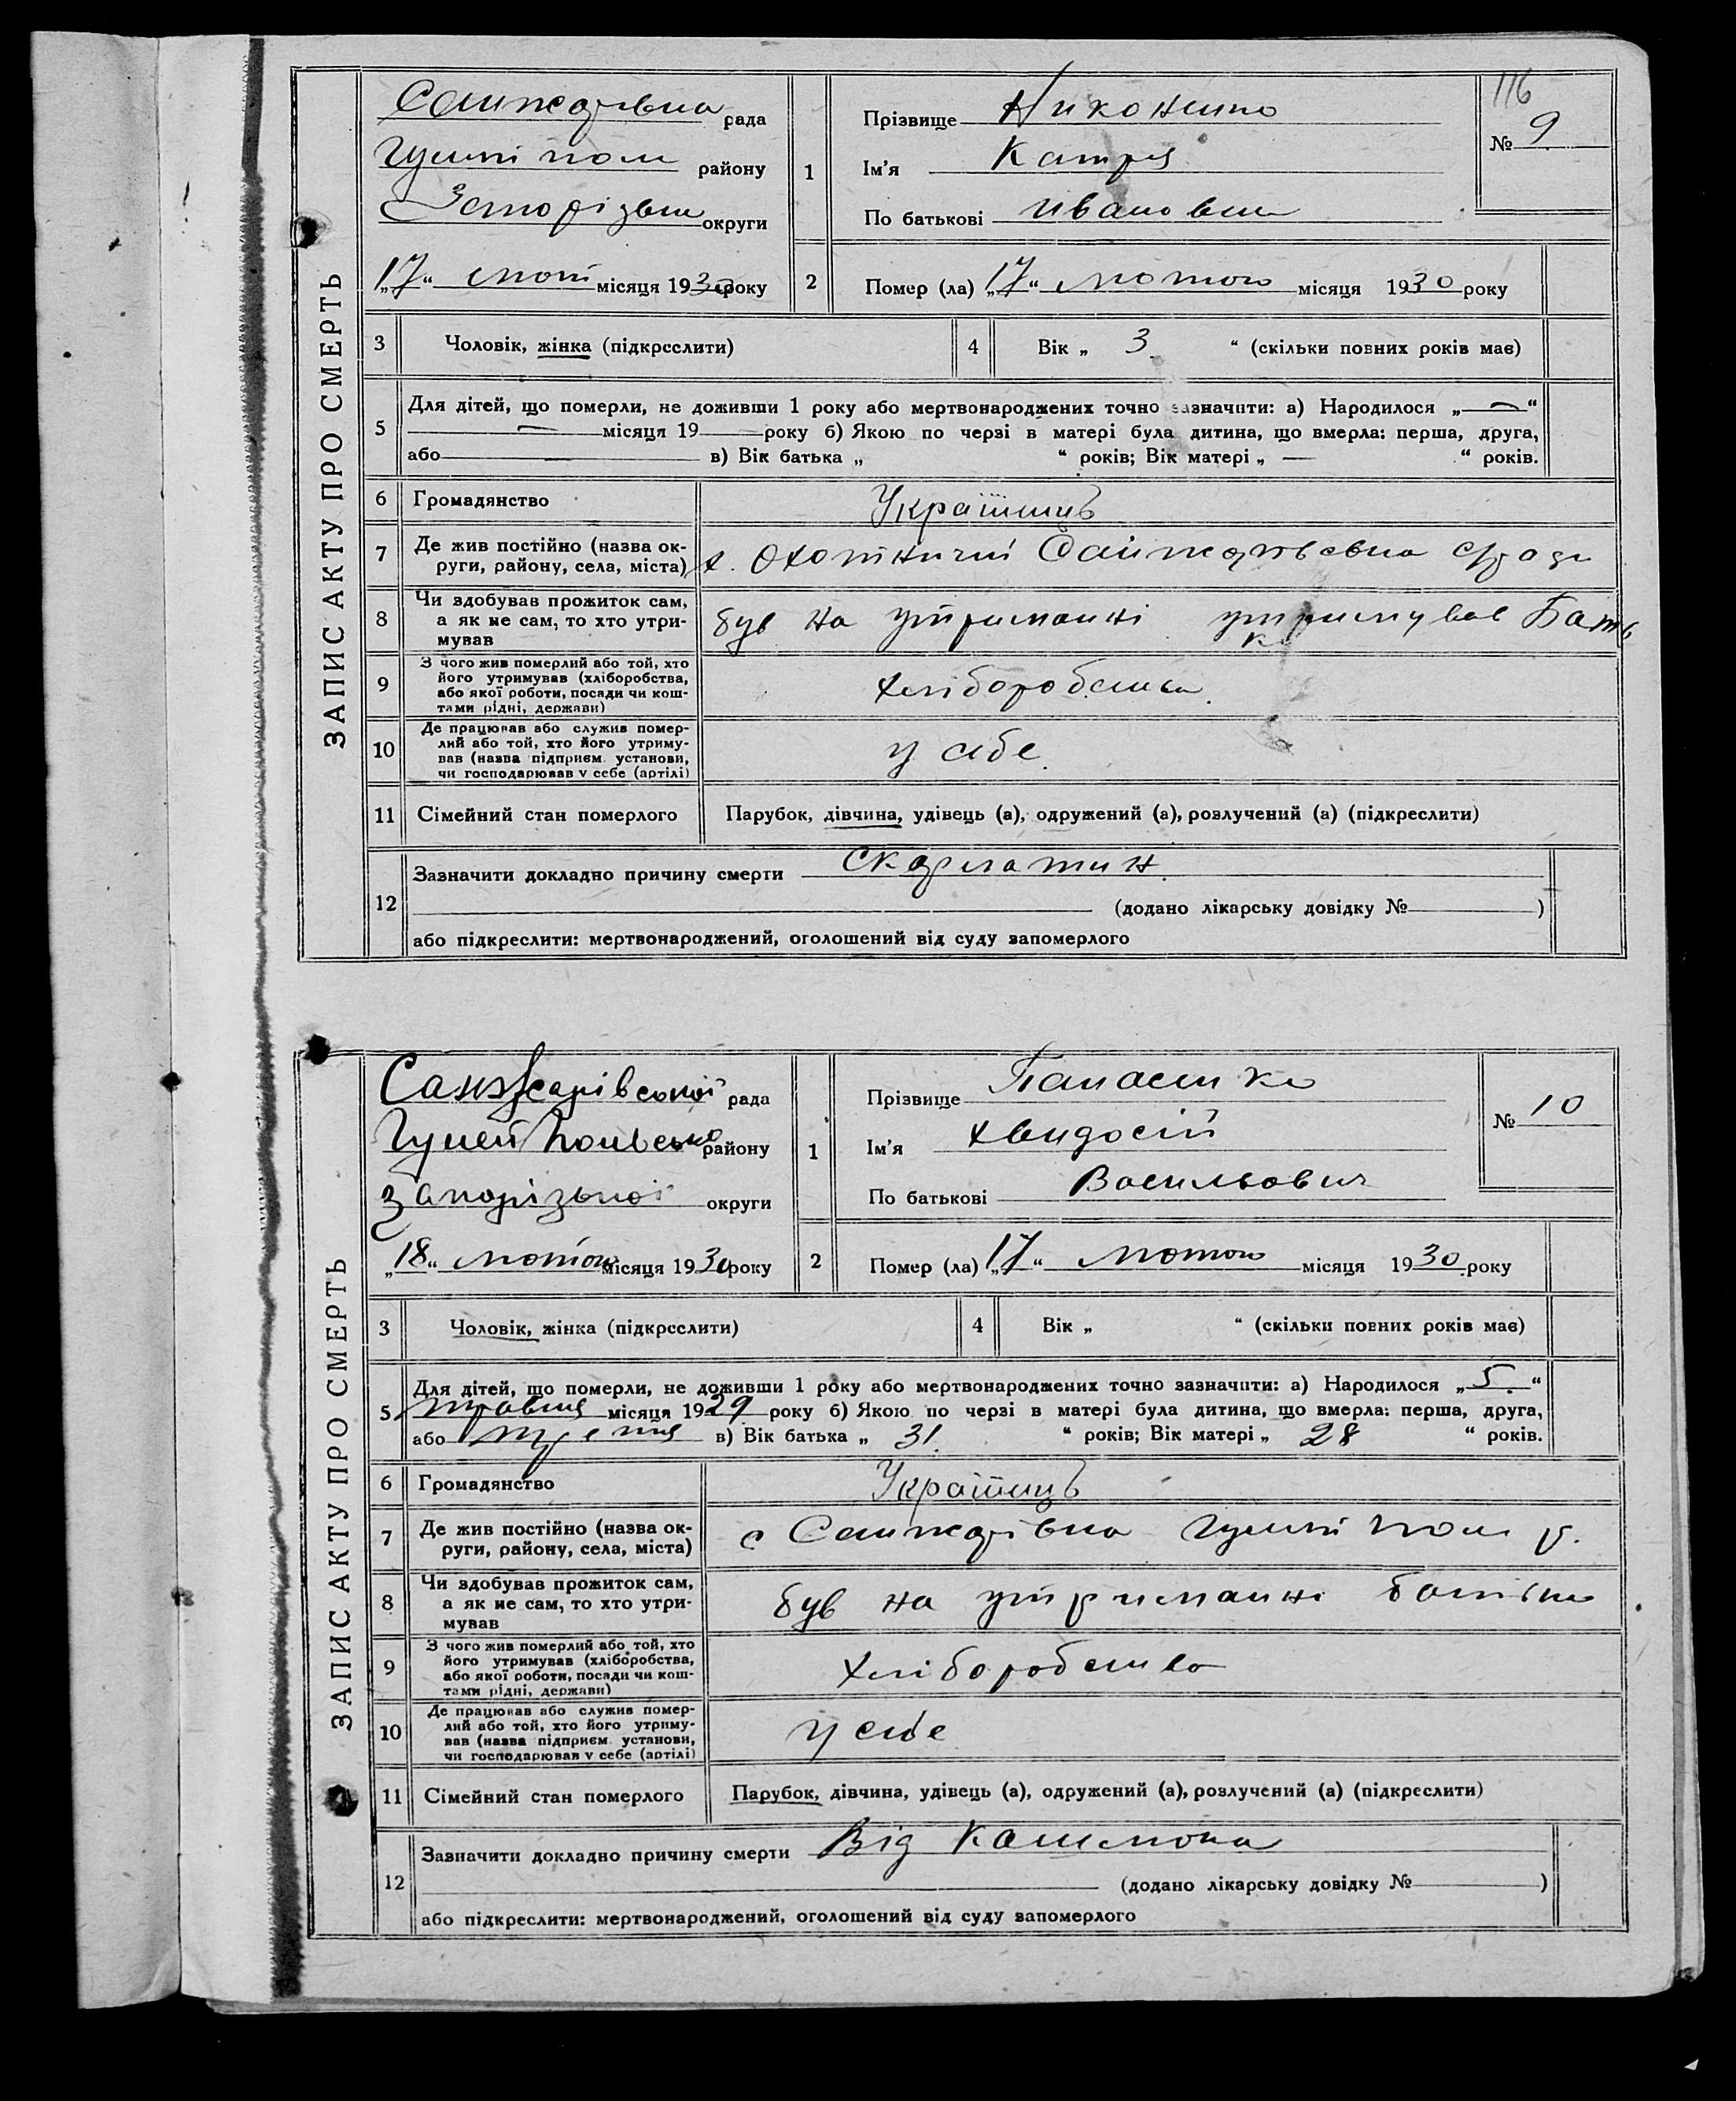 ЗАПИС АКТУ ПРО СМЕРТЬ
116
рада
району
Запорізьк округи
„17“ лют місяця 1930 року
1
Прізвище
Ім'я Катря
По батькові Ивановна
№ 9
2
Помер (ла) „17“ лютого місяця 1930 року
3
Чоловік, жінка (підкреслити)
4
Вік „ 3 “ (скільки повних років має)
5
Для дітей, що померли, не доживши 1 року або мертвонароджених точно зазначити: а) Народилося „—“
— місяця 19 року б) Якою по черзі в матері була дитина, що вмерла: перша, друга,
або в) Вік батька „ “ років; Вік матері „ — “ років.
6
Громадянство
Українць
7
Де жив постійно (назва ок-
руги, району, села, міста)
х. Охотничий
8
Чи здобував прожиток сам,
а як не сам, то хто утри-
мував
був на утриманні утримував Бать
ко
9
З чого жив померлий або той, хто
його утримував (хліборобства,
або якої роботи, посади чи кош-
тами рідні, держави)
хліборобства
10
Де працював або служив помер-
лий або той, хто його утриму-
вав (назва підприєм. установи,
чи господарював у себе (артілі)
у себе
11
Сімейний стан померлого
Парубок, дівчина, удівець (а), одружений (а), розлучений (а) (підкреслити)
12
Зазначити докладно причину смерти Скарлатин
(додано лікарську довідку № )
або підкреслити: мертвонароджений, оголошений від суду запомерлого
ЗАПИС АКТУ ПРО СМЕРТЬ
Санжарівської рада
Гуляйпольсько району
Запорізької округи
„18“ лютого місяця 1930 року
1
Прізвище Панасенко
Ім'я Хвидосій
По батькові Васильович
№ 10
2
Помер (ла) „17“ лютого місяця 1930 року
3
Чоловік, жінка (підкреслити)
4
Вік „ “ (скільки повних років має)
5
Для дітей, що померли, не доживши 1 року або мертвонароджених точно зазначити: а) Народилося „5“
травня місяця 1929 року б) Якою по черзі в матері була дитина, що вмерла: перша, друга,
або третя в) Вік батька „ 31 “ років; Вік матері „ 28 “ років.
6
Громадянство
Українець
7
Де жив постійно (назва ок-
руги, району, села, міста)
с Санжарівка Гуляй Поль р.
8
Чи здобував прожиток сам,
а як не сам, то хто утри-
мував
був на утриманні батька
9
З чого жив померлий або той, хто
його утримував (хліборобства,
або якої роботи, посади чи кош-
тами рідні, держави)
хліборобства
10
Де працював або служив помер-
лий або той, хто його утриму-
вав (назва підприєм. установи,
чи господарював у себе (артілі)
у себе
11
Сімейний стан померлого
Парубок, дівчина, удівець (а), одружений (а), розлучений (а) (підкреслити)
12
Зазначити докладно причину смерти Від Кашлюка
(додано лікарську довідку № )
або підкреслити: мертвонароджений, оголошений від суду запомерлого